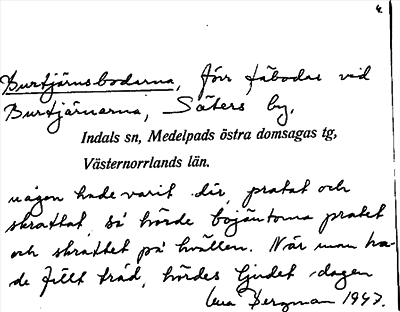 Burtjärnsbodarna, förr fäbodar vid
Burtjärnarna, Säters by,
Indals sn, Medelpads östra domsagas tg,
Västernorrlands län.
någon hade varit där, pratat och
skrattat, så hörde bojäntorna pratet
och skrattet på kvällen. När man ha-
de fällt träd, hördes ljudet dagen
Bergman 1947.